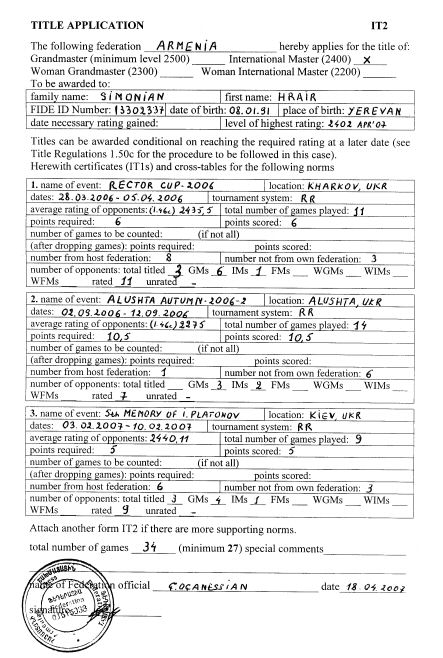 TITLE APPLICATION IT2
The following federation ARMENIA hereby applies for the title of:
Grandmaster (minimum level 2500) International Master (2400) x
Woman Grandmaster (2300) Woman International Master (2200)
To be awarded to:
family name: SIMONIAN first name: HRAIR
FIDE ID Number: 13302337 date of birth: 08.01.91 place of birth: YEREVAN
date necessary rating gained: level of highest rating: 2402 APR'07
Titles can be awarded conditional on reaching the required rating at a later date (see
Title Regulations 1.50c for the procedure to be followed in this case).
Herewith certificates (IT1s) and cross-tables for the following norms
1. name of event: RECTOR CUP-2006 location: KHARKOV, UKR
dates: 28.03.2006-05.04.2006 tournament system: RR
average rating of opponents: (1.46c) 2435,5 total number of games played: 11
points required: 6 points scored: 6
number of games to be counted: (if not all)
(after dropping games): points required: points scored:
number from host federation: 8 number not from own federation: 3
number of opponents: total titled 3 GMs 6 IMs 1 FMs WGMs WIMs
WFMs rated 11 unrated -
2. name of event: ALUSHTA AUTUMN-2006-2 location: ALUSHTA, UKR
dates: 02.09.2006-12.09.2006 tournament system: RR
average rating of opponents: (1.46c) 2275 total number of games played: 14
points required: 10,5 points scored: 10,5
number of games to be counted: (if not all)
(after dropping games): points required: points scored:
number from host federation: 1 number not from own federation: 6
number of opponents: total titled GMs 3 IMs 2 FMs WGMs WIMs
WFMs rated 7 unrated -
3. name of event: 5th MEMORY OF I. PLATONOV location: KIEV, UKR
dates: 03.02.2007-10.02.2007 tournament system: RR
average rating of opponents: 2440,11 total number of games played: 9
points required: 5 points scored: 5
number of games to be counted: (if not all)
(after dropping games): points required: points scored:
number from host federation: 6 number not from own federation: 3
number of opponents: total titled 3 GMs 4 IMs 1 FMs WGMs WIMs
WFMs rated 9 unrated -
Attach another form IT2 if there are more supporting norms.
total number of games 34 (minimum 27) special comments
name of Federation official G.OGANESSIAN date 18.04.2007
signature